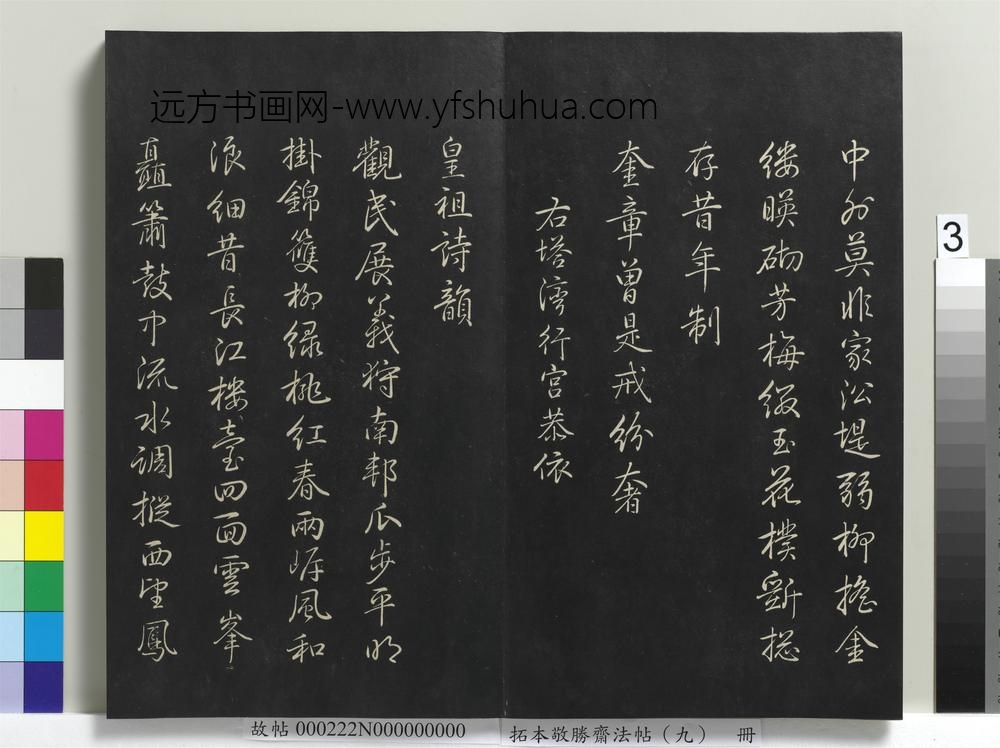 远方书画网-www.yfshuhua.com
中外莫非家沿堤弱柳搖金
缕暎砌芳梅缀玉花樸斵揔
存昔年制
奎章曽是戒纷奢
右塔湾行宫恭依
皇祖詩韻
觀民展義狩南邦瓜步平明
掛錦篗柳绿桃红春兩㟁風和
浪细昔長江楼臺四面雲峯
矗箫鼓中流水調摐西望鳳
3
故帖 000222N000000000
拓本敬勝齋法帖（九） 冊